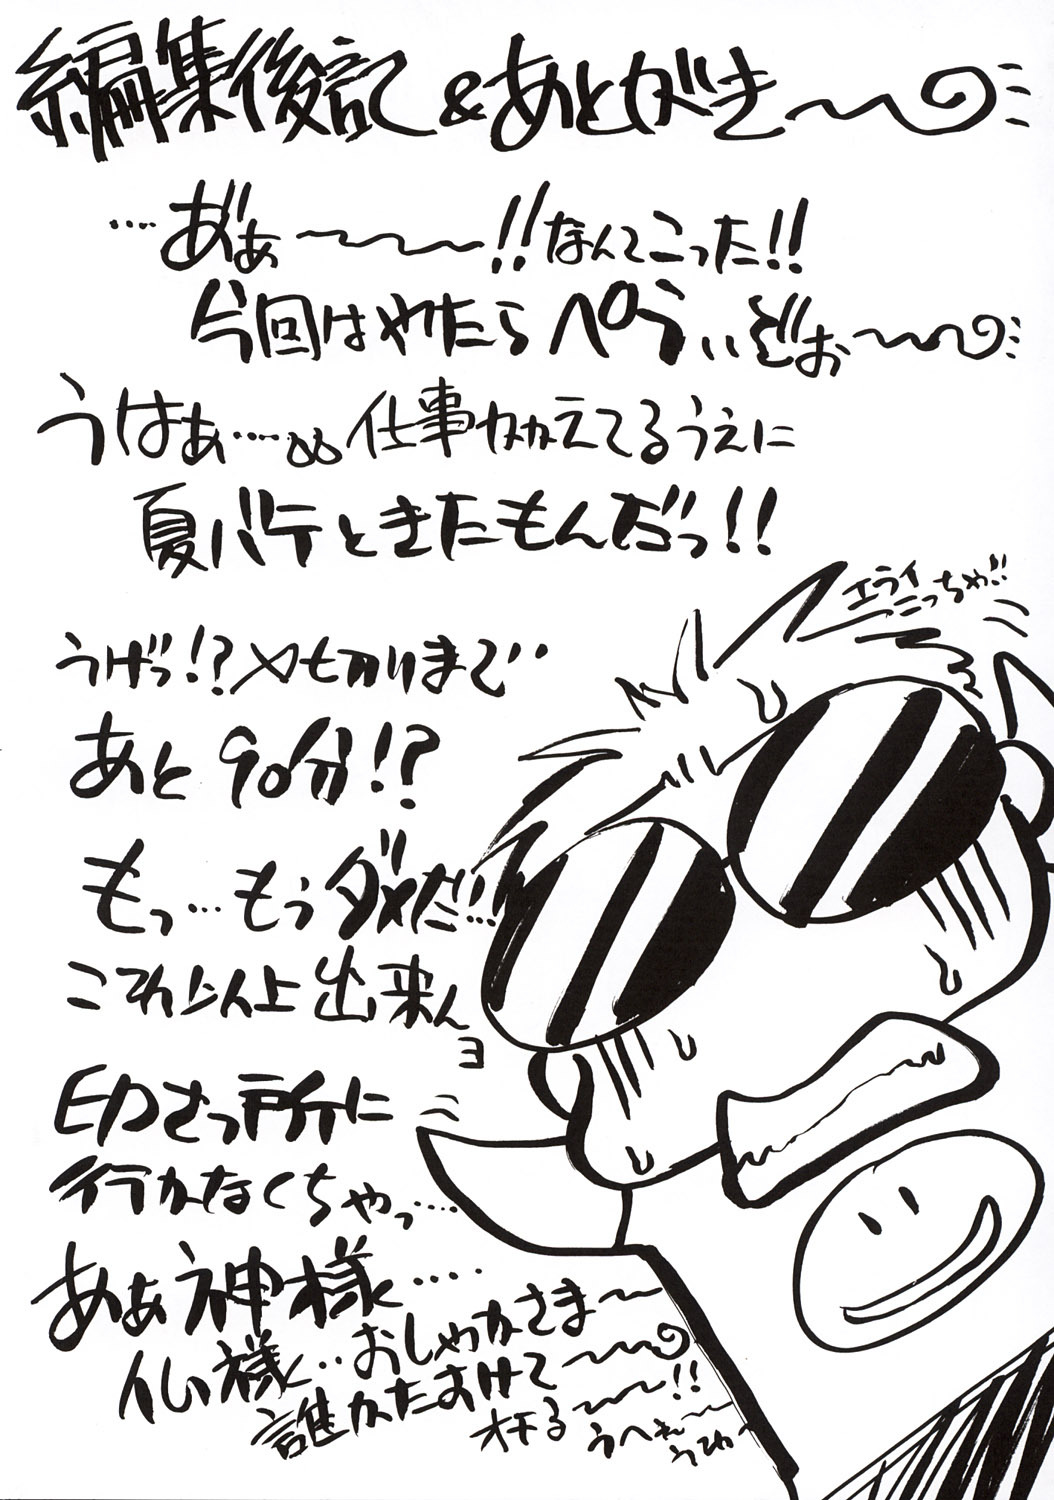 編集後記&あとがき〜
‥‥あ゛ぁ〜〜〜!!なんてこった!!
今回はやたらペラぃぃぞぉ〜〜
うはぁ‥‥。。仕事かかえてるうえに
夏バテときたもんだっ!!
エライこっちゃ!!
うげっ!?〆切りまで‥
あと90分!?
もっ…もうダメだ…
これ以上出来ん
ヨ
印さっ所に
行かなくちゃっ‥‥
あぁ神様‥‥
仏様‥おしゃかさま〜
誰かたすけて〜〜
オチる〜〜!!
うへぇ〜〜